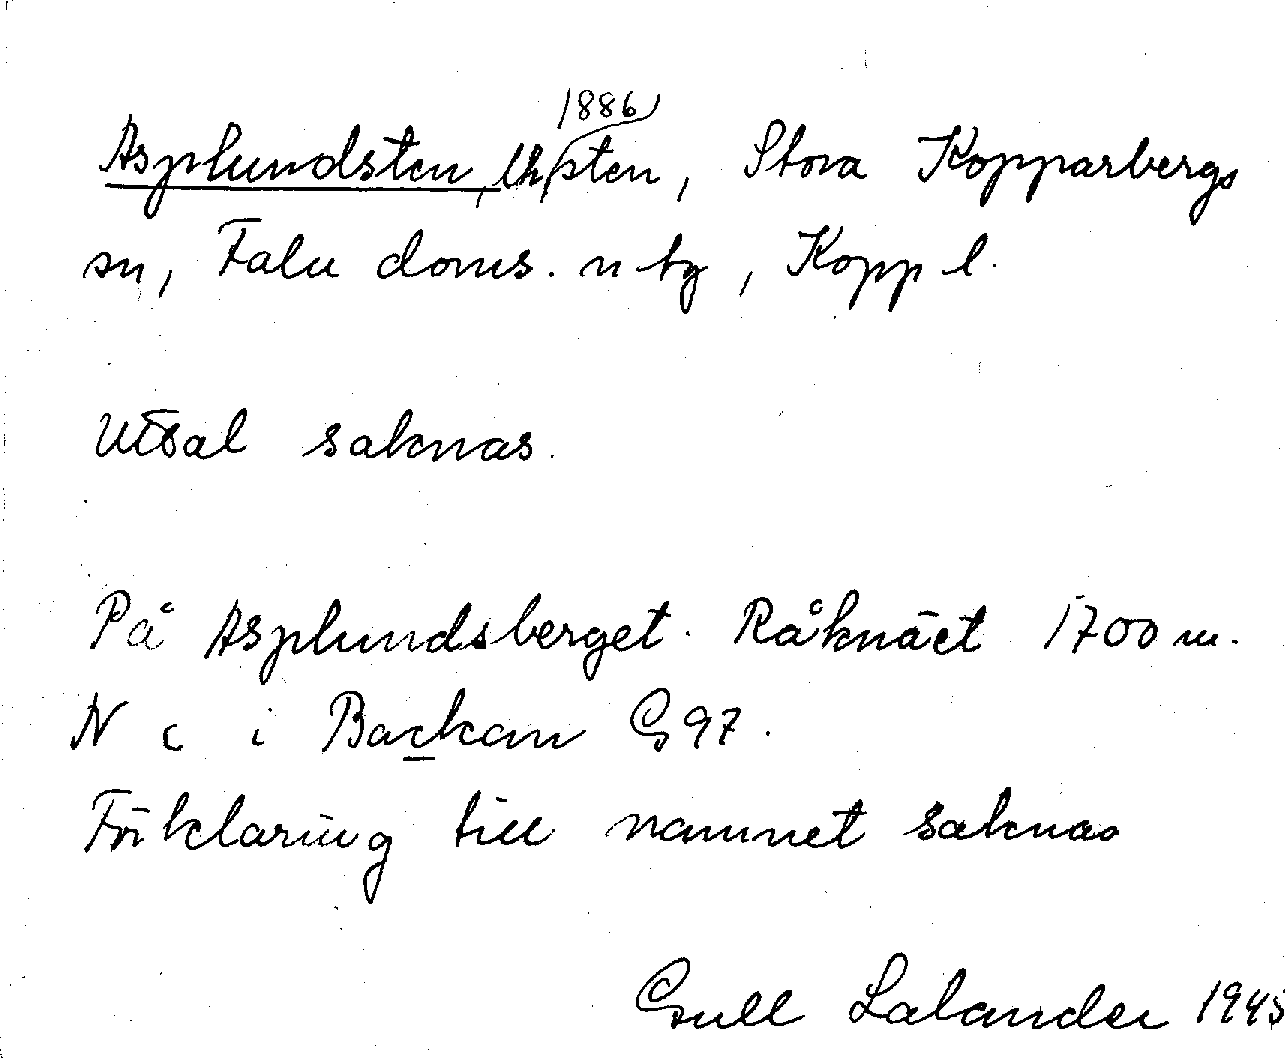 1886
Asplundsten, sten, Stora Kopparbergs
sn, Falu doms. n tg, Kopp l.
Uttal saknas.
På Asplundsberget. Råknäet 1700 m.
N c i Backan G 97.
Förklaring till namnet saknas
Gull Lalander 1945